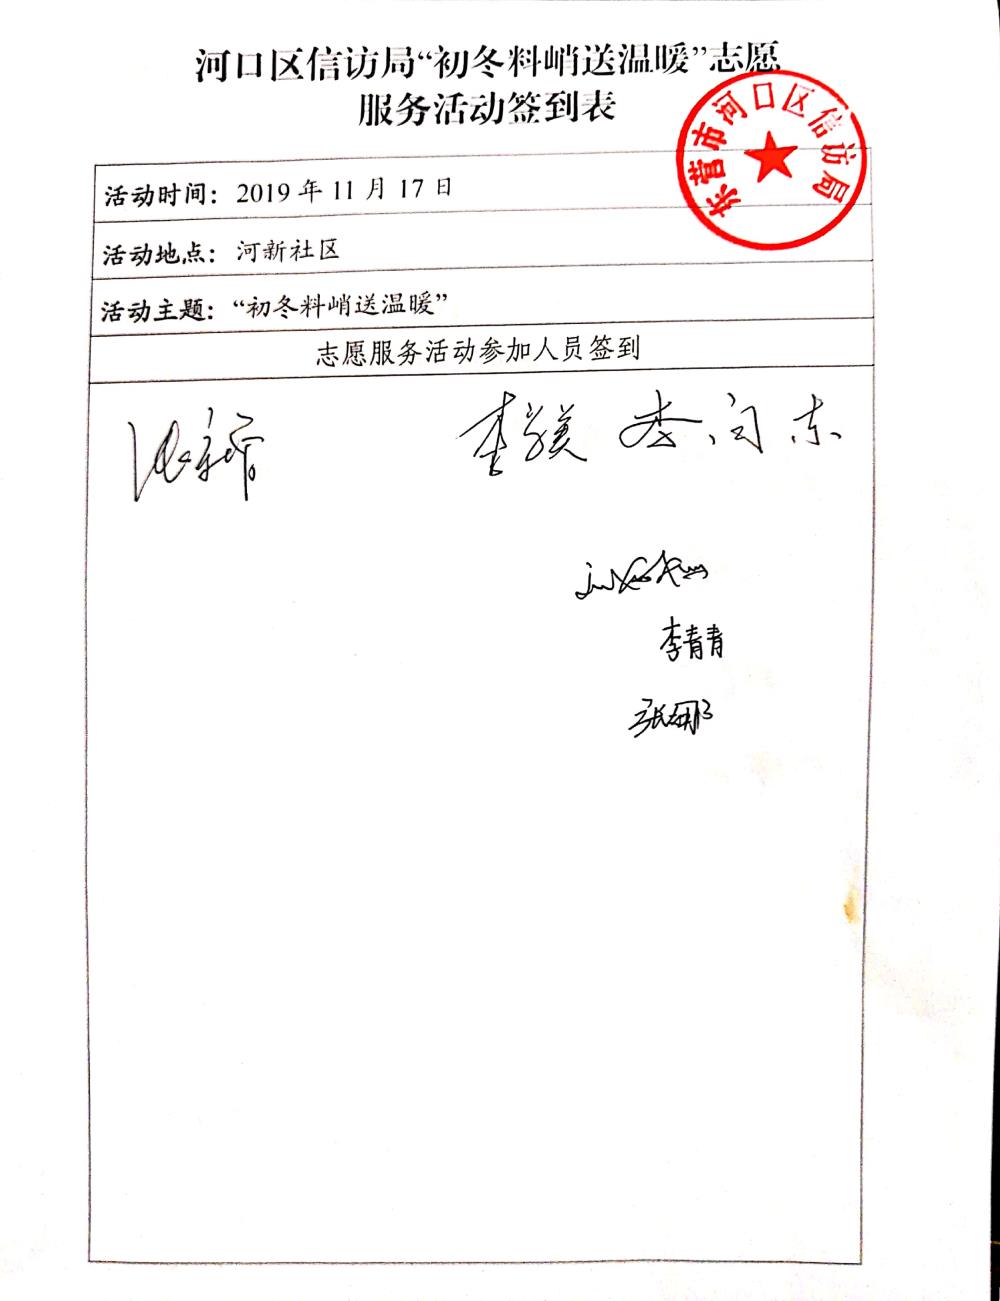 河口区信访局“初冬料峭送温暖”志愿
服务活动签到表
东营市河口区信访局
活动时间：2019年11月17日
活动地点：河新社区
活动主题：“初冬料峭送温暖”
志愿服务活动参加人员签到
李向东
李青青
张娜